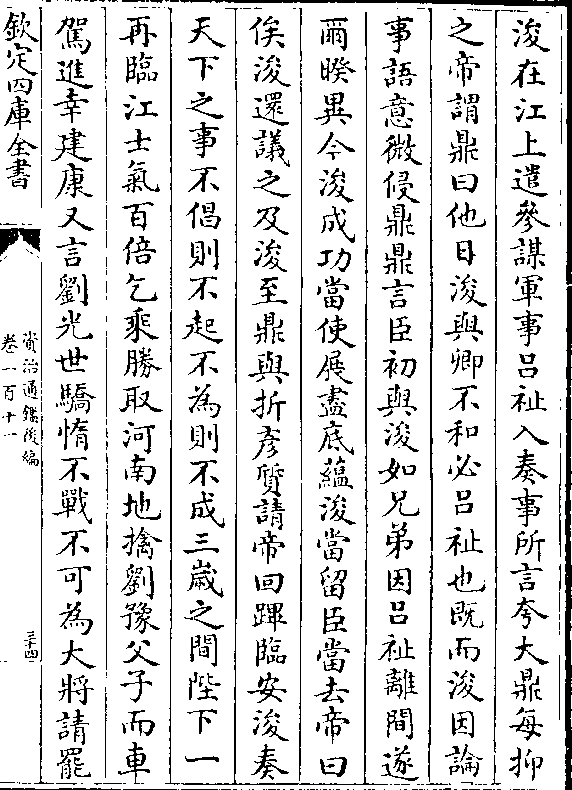 浚在江上遣參謀軍事吕祉入奏事所言夸大鼎每抑
之帝謂鼎曰他日浚與卿不和必吕祉也既而浚因論
事語意微侵鼎鼎言臣初與浚如兄弟因吕祉離間遂
爾暌異今浚成功當使展盡底藴浚當留臣當去帝曰
俟浚還議之及浚至鼎與折彦質請帝回蹕臨安浚奏
天下之事不倡則不起不為則不成三嵗之間陛下一
再臨江士氣百倍乞乘勝取河南地擒劉豫父子而車
駕進幸建康又言劉光世驕惰不戰不可為大將請罷
欽定四庫全書
資治通鑑後編
卷一百十一
三十四